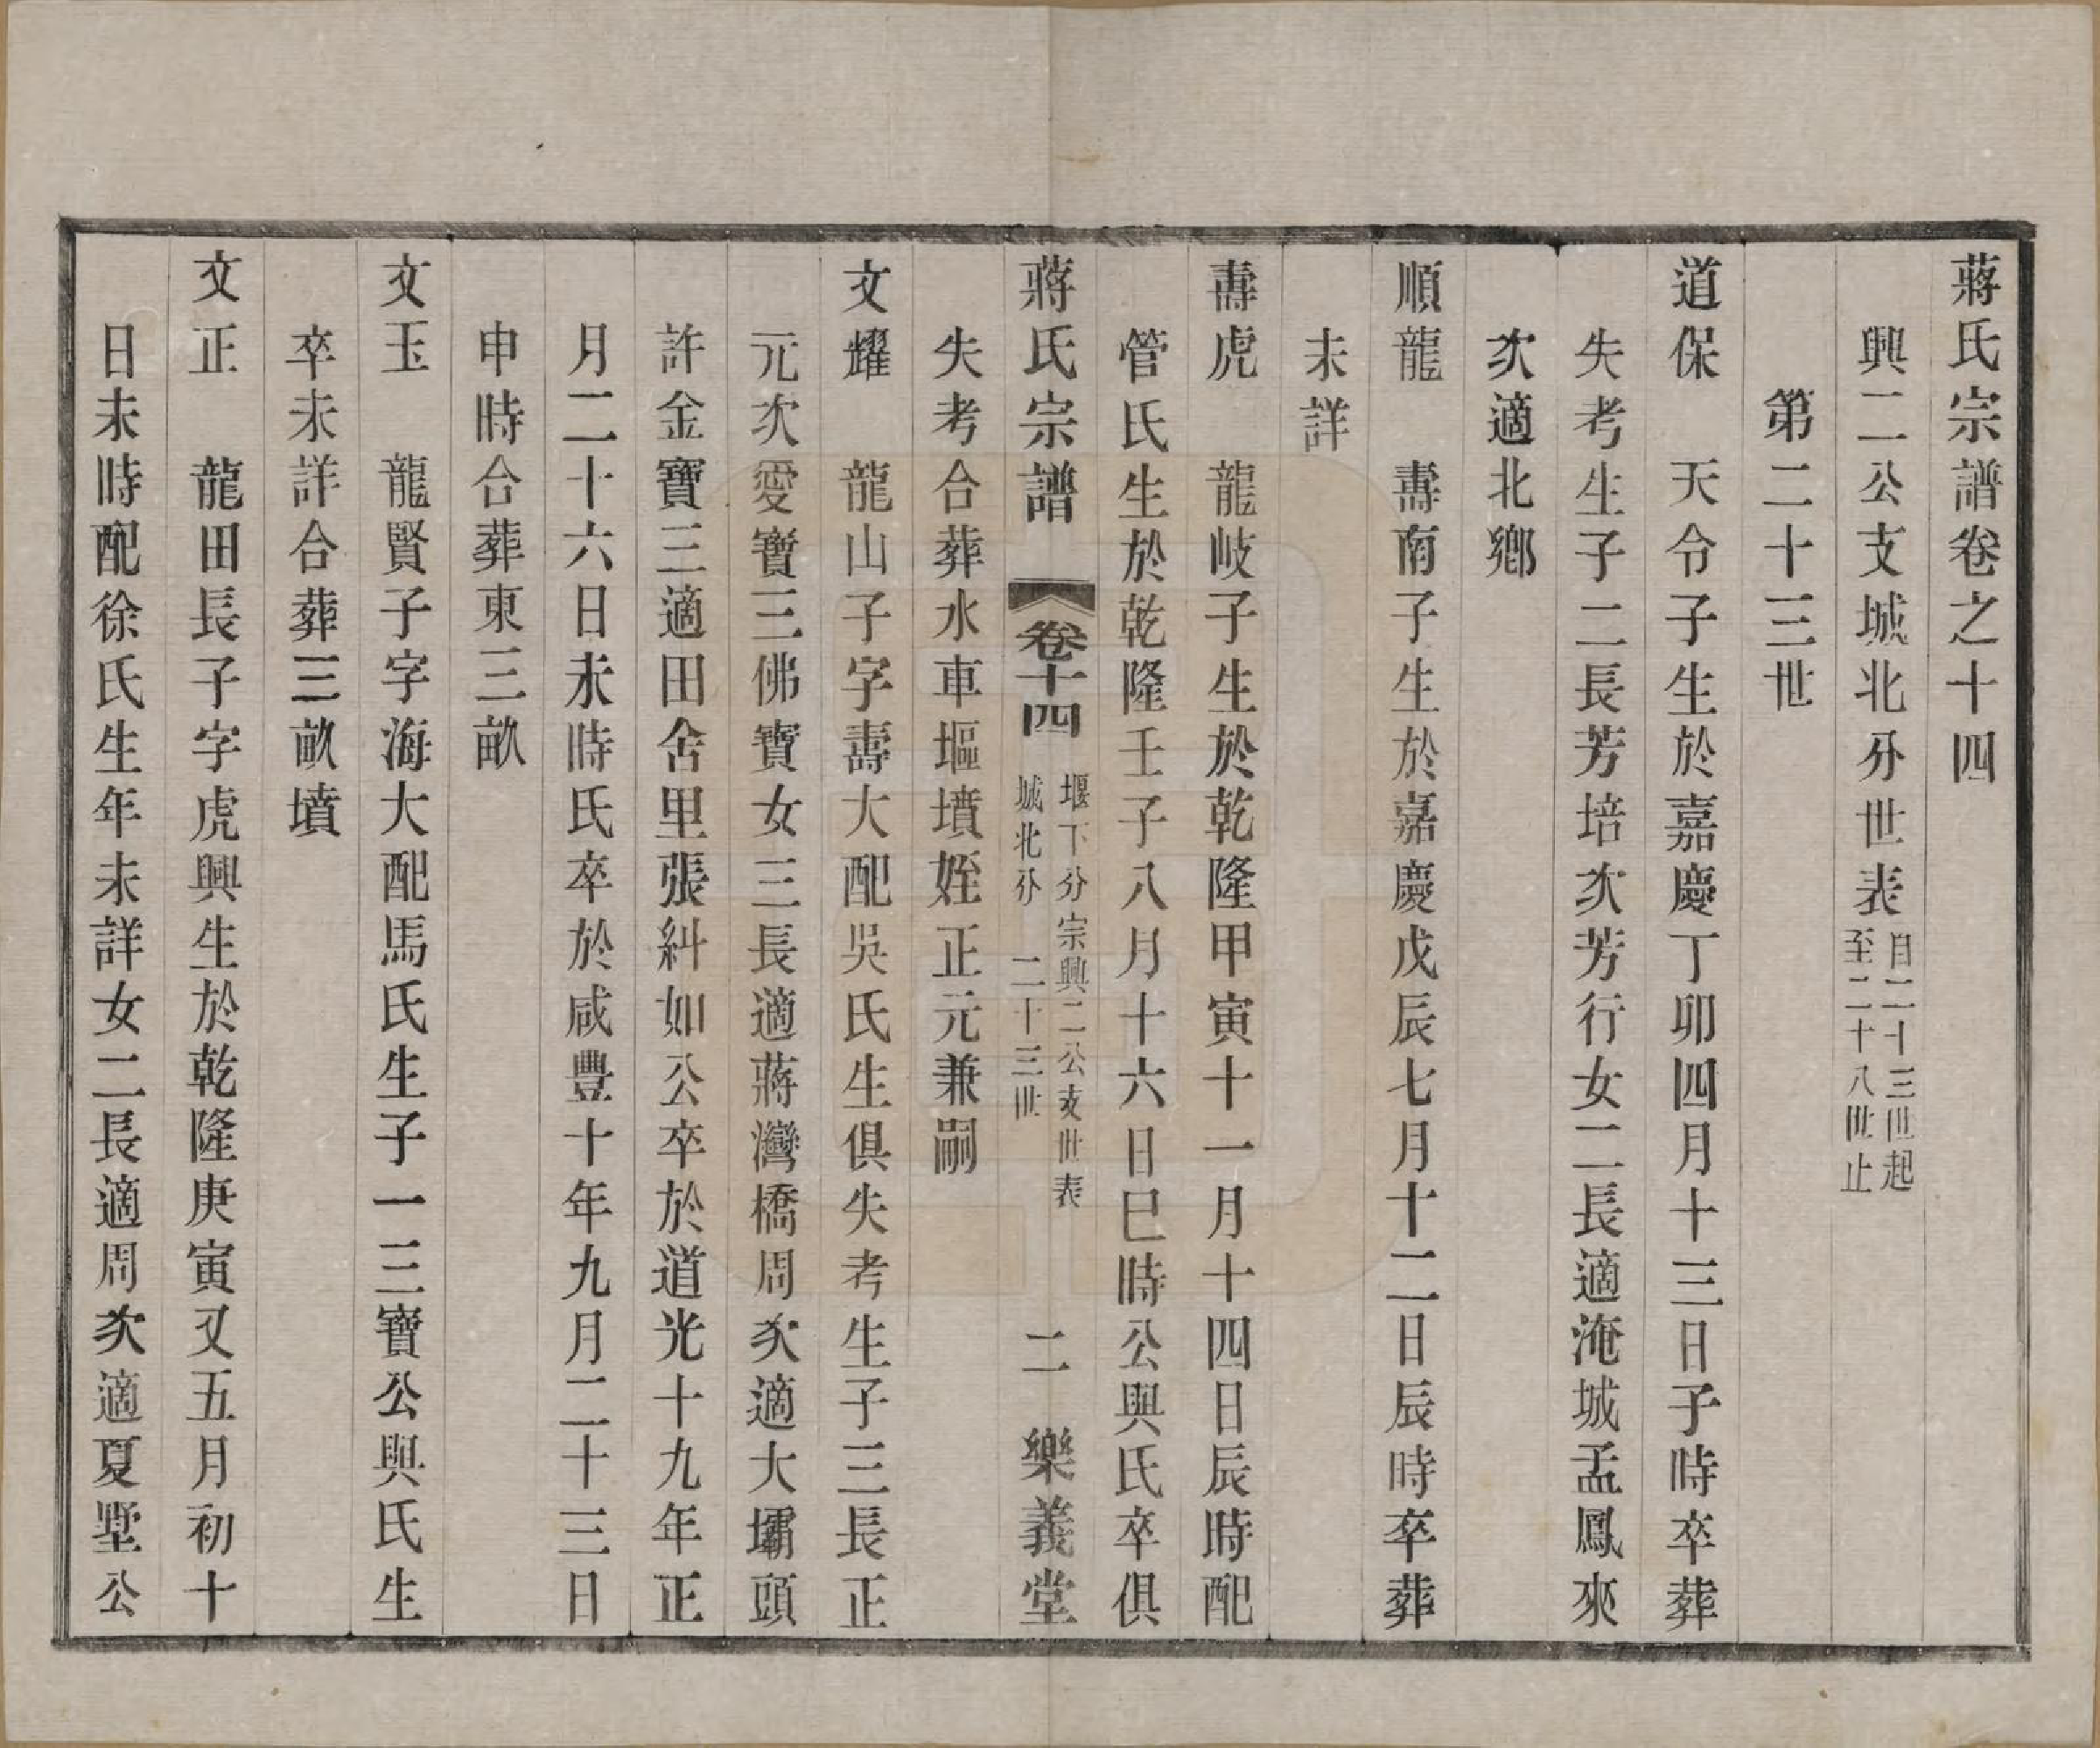 蔣氏宗譜卷之十四
興二公支城北分世表
自二十三世起
至二十八世止
第二十三世
道保　天令子生於嘉慶丁卯四月十三日子時卒葬
失考生子二長芳培次芳行女二長適淹城孟鳳來
次適北鄉
順龍　壽南子生於嘉慶戊辰七月十二日辰時卒葬
未詳
壽虎　龍岐子生於乾隆甲寅十一月十四日辰時配
管氏生於乾隆壬子八月十六日巳時公與氏卒俱
蔣氏宗譜　卷十四
堰下分宗興二公支世表
城北分　二十三世
二　樂義堂
失考合葬水車塸墳姪正元兼嗣
文耀　龍山子字壽大配吳氏生俱失考生子三長正
元次愛寶三佛寶女三長適蔣灣橋周次適大壩頭
許金寶三適田舍里張糾如公卒於道光十九年正
月二十六日未時氏卒於咸豐十年九月二十三日
申時合葬東三畝
文玉　龍賢子字海大配馬氏生子一三寶公與氏生
卒未詳合葬三畝墳
文正　龍田長子字虎興生於乾隆庚寅又五月初十
日未時配徐氏生年未詳女二長適周次適夏墅公